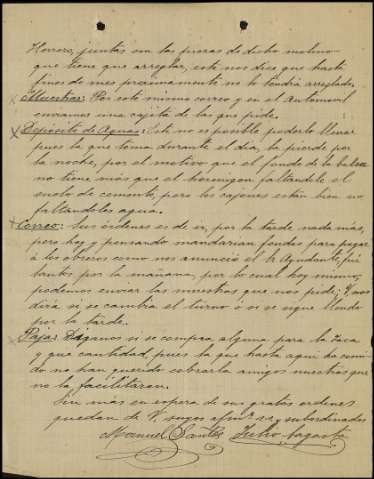 Herrero, juntas con las piezas de dicho molino
que tiene que arreglar, este nos dice que hasta
fines de mes proximamente no lo tendrá arreglado.
Muestras: Por este mismo correo y en el automovil
enviamos una cajita de las que pide.
Deposito de Aguas: Este no es posible poderlo llenar
pues la que toma durante el dia, la pierde por
la noche, por el motivo que el fondo de la balsa
no tiene más que el hormigon faltandole el
suelo de cemento, pero los cajones estan bien no
faltandoles agua.
Correo: Sus órdenes es de ir, por la tarde nada más,
pero hoy y pensando mandarian fondos para pagar
á los obreros como nos anunció el Sr Ayudante, fué
tambos por la mañana, por lo cual hoy mismo
podemos enviar las muestras que nos pide; V. nos
dirá si se cambia el turno ó si se sigue llendo
por la tarde.
Paja: Díganos si se compra, alguna para la Jaca
y que cantidad, pues la que hasta aqui ha comi-
do no han querido cobrarla amigos nuestros que
no la facilitaron.
Sin más en espera de sus gratas ordenes
quedan de V. suyos afmos ss. subordinados
Manuel Santos Julio Sagasta